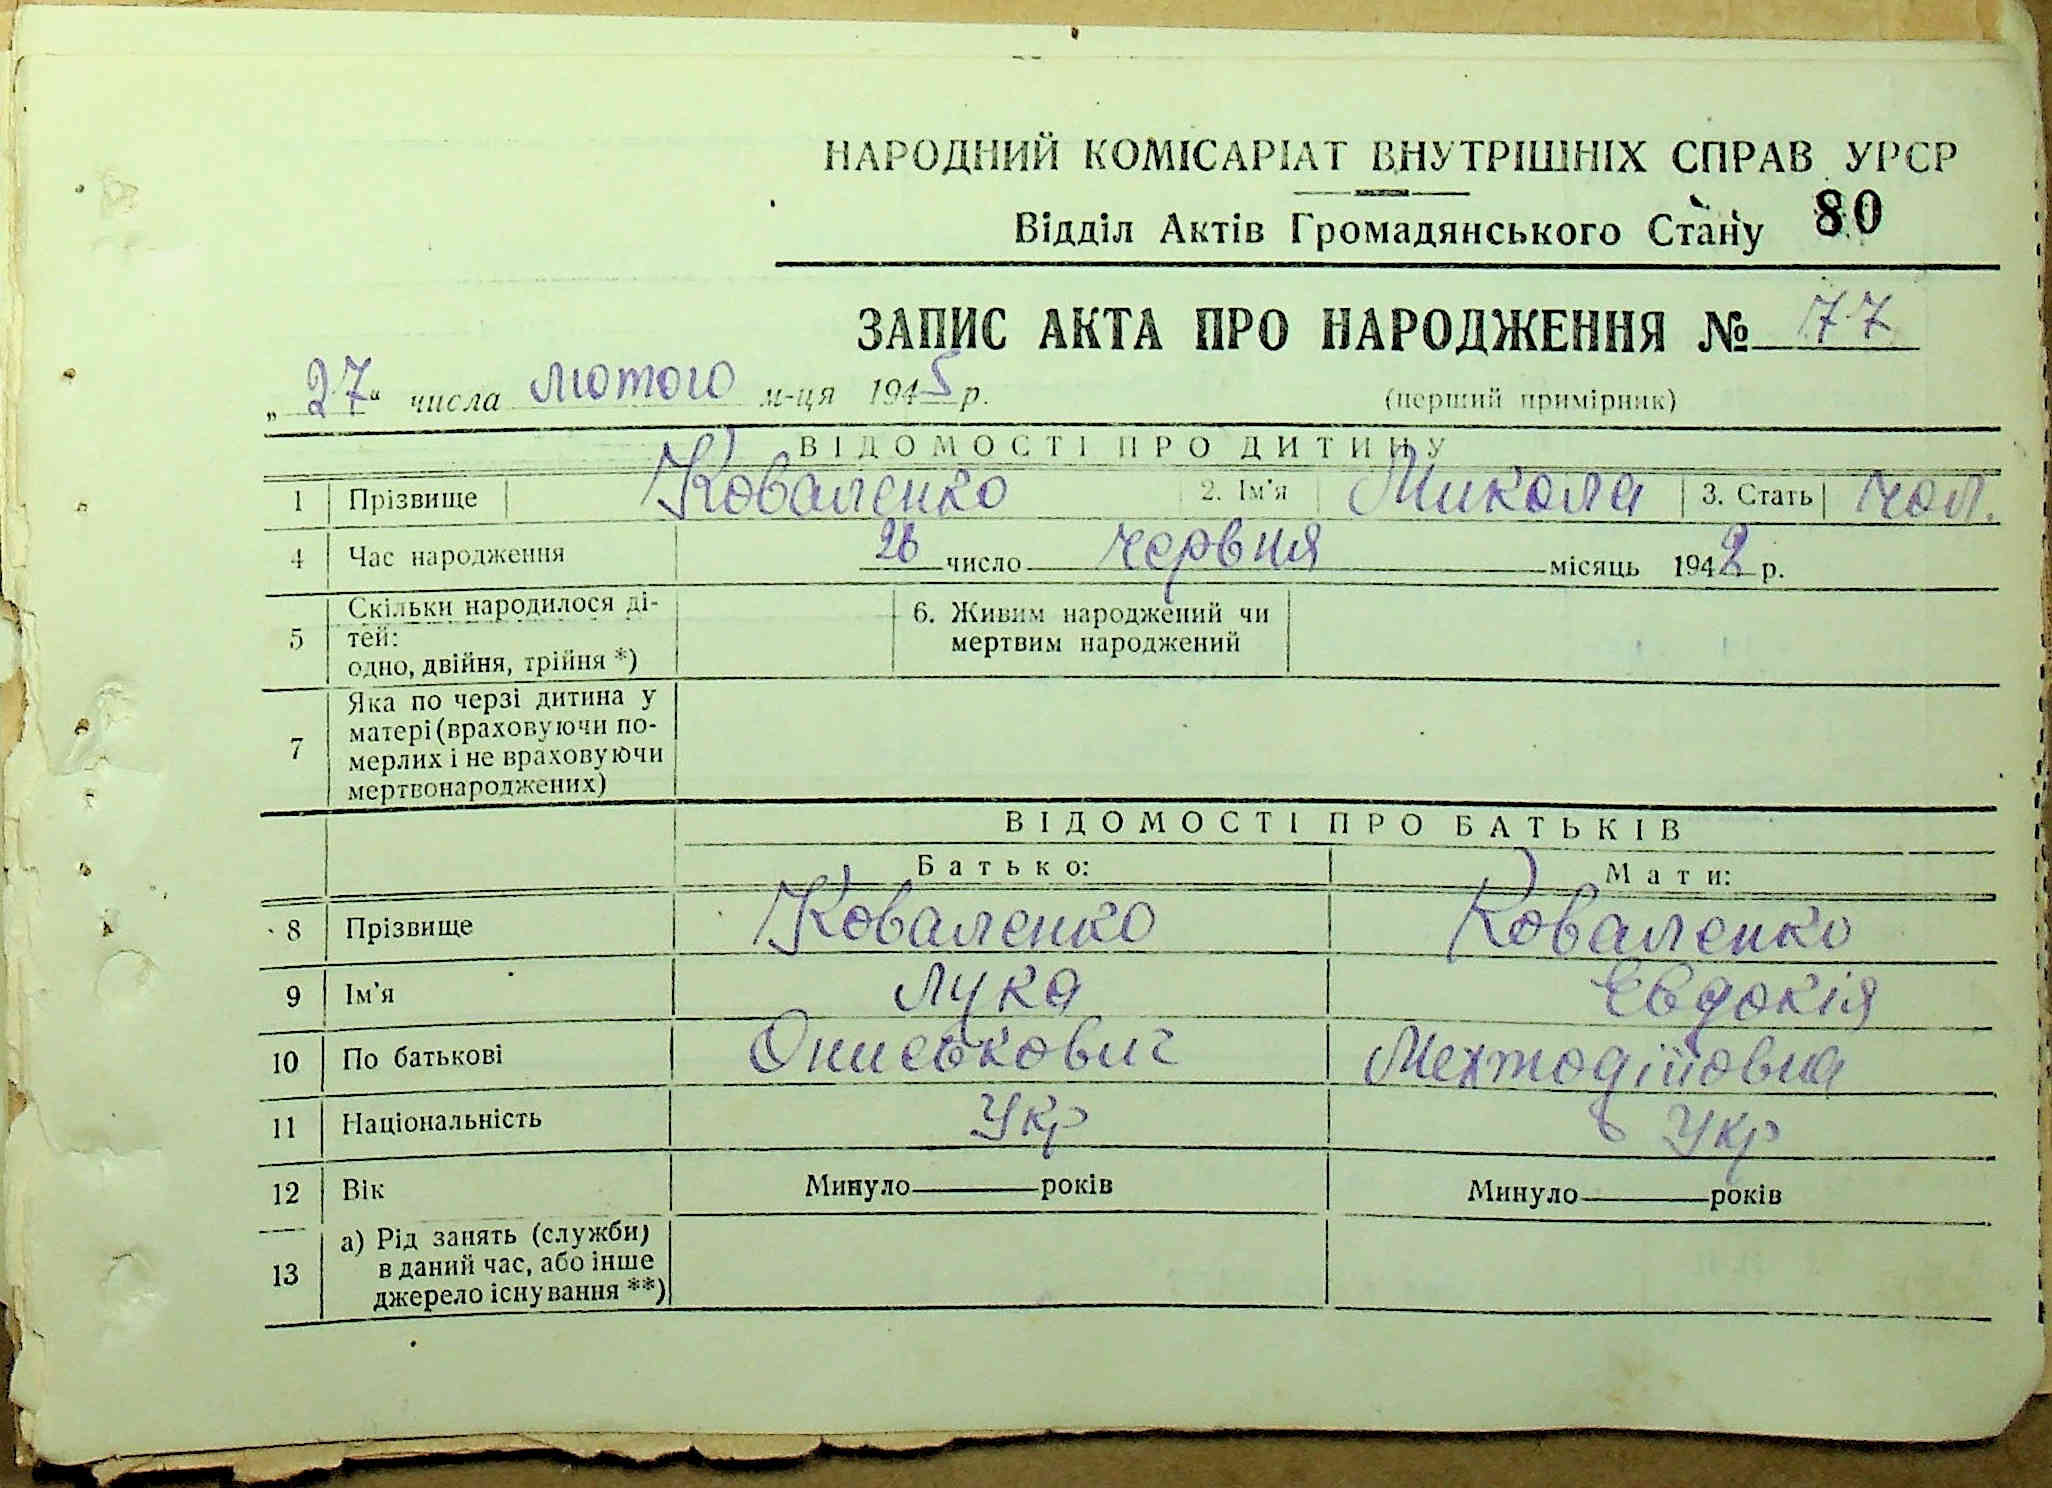 НАРОДНИЙ КОМІСАРІАТ ВНУТРІШНІХ СПРАВ УРСР
Відділ Актів Громадянського Стану 80
ЗАПИС АКТА ПРО НАРОДЖЕННЯ № 77
„27“ числа лютого м-ця 1945 р. (перший примірник)
ВІДОМОСТІ ПРО ДИТИНУ
1 Прізвище Коваленко 2. Ім'я Микола 3. Стать чол.
4 Час народження 26 число червня місяць 1942 р.
5 Скільки народилося ді-
тей:
одно, двійня, трійня *)
6. Живим народжений чи
мертвим народжений
7 Яка по черзі дитина у
матері (враховуючи по-
мерлих і не враховуючи
мертвонароджених)
ВІДОМОСТІ ПРО БАТЬКІВ
Батько: Мати:
8 Прізвище Коваленко Коваленко
9 Ім'я Лука Евдокія
10 По батькові Ониськович Мехтодіївна
11 Національність Укр Укр
12 Вік Минуло років Минуло років
13 а) Рід занять (служби)
в даний час, або інше
джерело існування **)